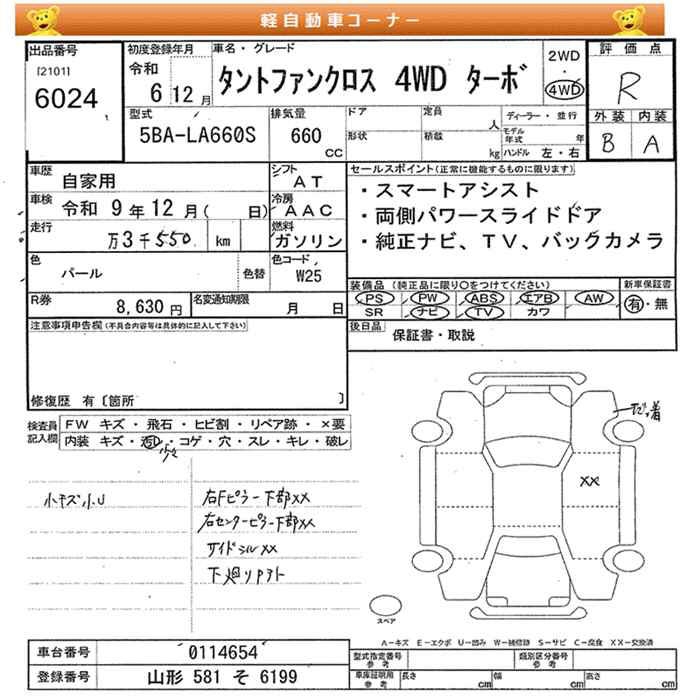 軽自動車コーナー
出品番号
[2101]
6024
初度登録年月
令和
6 12月
車名・グレード
タントファンクロス 4WD ターボ
2WD
・
4WD
評価点
R
外装 内装
B A
型式
5BA-LA660S
排気量
660
CC
ドア
形状
定員
人
積載
kg
ディーラー・並行
モデル年式 年
ハンドル 左・右
車歴
自家用
シフト
AT
車検 令和 9年12月( 日)
冷房
AAC
走行
万3千550 km
燃料
ガソリン
色
パール
色替
色コード
W25
R券
8,630円
名変通知期限
月 日
セールスポイント(正常に機能するものに限ります)
・スマートアシスト
・両側パワースライドドア
・純正ナビ、TV、バックカメラ
装備品(純正品に限り○をつけてください)
PS PW ABS エアB AW
SR ナビ TV カワ
新車保証書
有・無
後日品
保証書・取説
注意事項申告欄(不具合内容等は具体的に記入して下さい)
修復歴 有〔箇所 〕
検査員
記入欄
FW キズ・飛石・ヒビ割・リペア跡・×要
内装 キズ・汚レ・コゲ・穴・スレ・キレ・破レ
小キズ小U
右Fピラー下部XX
右センターピラー下部XX
サイドシルXX
下廻りサフト
XX
スペア
A-キズ E-エクボ U-凹み W-補修跡 S-サビ C-腐食 XX-交換済
車台番号
0114654
登録番号
山形 581 そ 6199
型式指定番号
参考
類別区分番号
参考
車庫証明用
参考
長さ
cm
幅
cm
高さ
cm